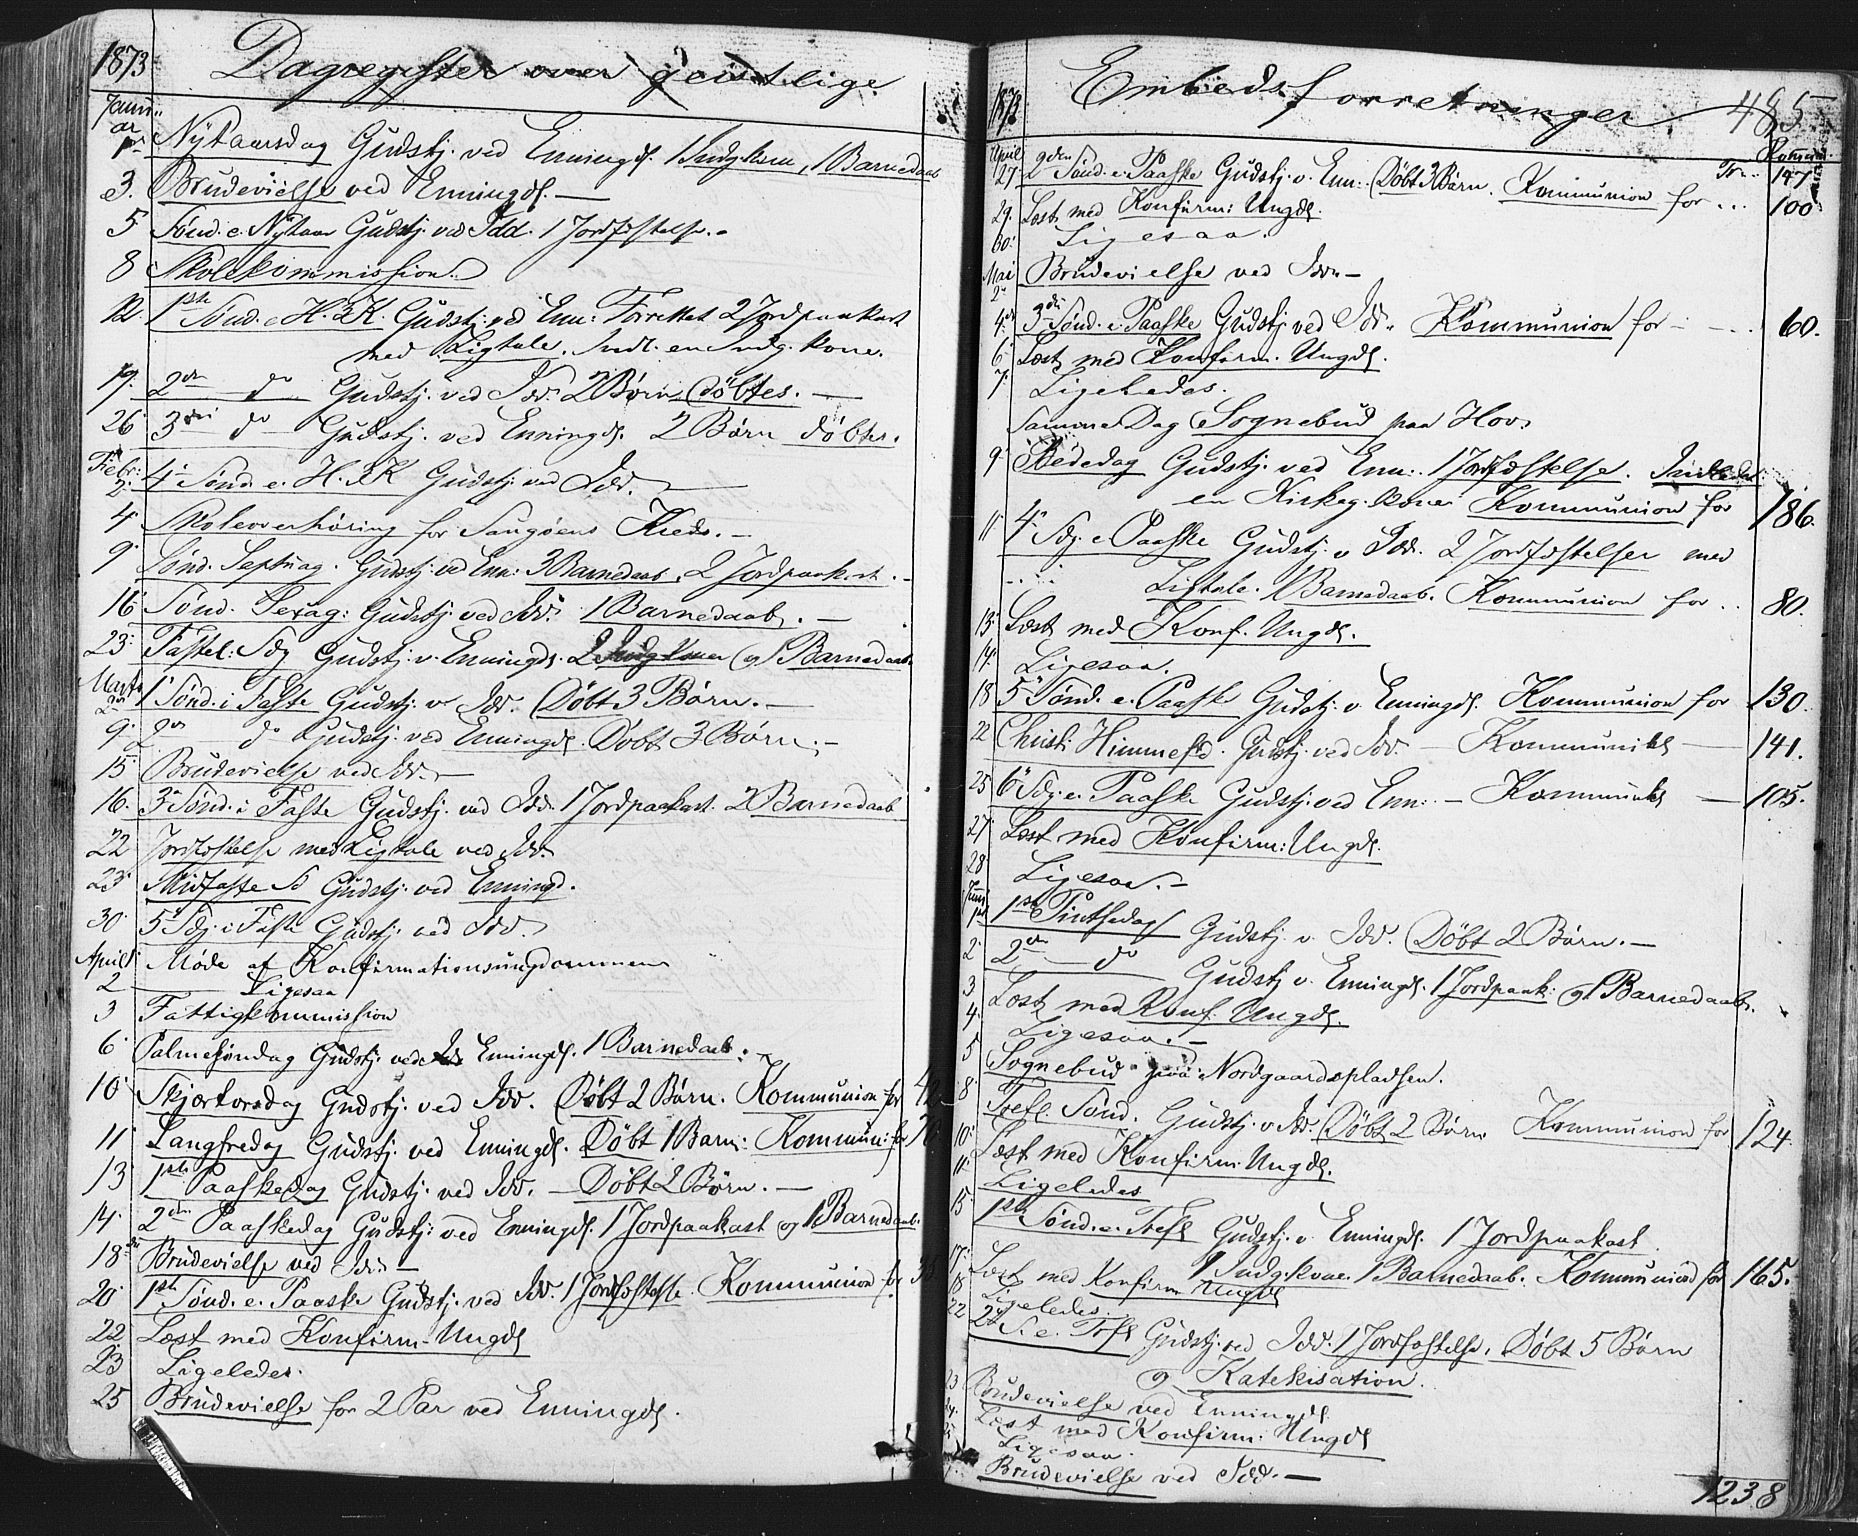 1873 Dagregister over geistlige
Januar
1ste Nytaarsdag Gudstj. ved Enningd. 1 Indg.kone, 1 Barnedaab
3. Brudevielse ved Enningd. —
5 Sønd. e. Nytaar Gudstj. ved Idd. 1 Jordfæstelse. -
8 Skolekommission.
12. 1ste Sønd. e. H. 3 K. Gudstj. ved Enn: Forrettet 2 Jordpaakast
med Ligtale. Indl. en Indg. kone.
19. 2den do Gudstj. ved Idd. 2 Børn døbtes. —
26. 3die do Gudstj. ved Enningd. 2 Børn døbtes.
Febr:
2. 4. Sønd. e. H. 3 K Gudstj. ved Idd. —
4. Skoleoverhøring for Kreds. —
9. Sønd. Septuag. Gudstj. ved Enn: 3 Barnedaab. 2 Jordpaakast. -
16. Sønd. Sexag: Gudstj. ved Idd. 1 Barnedaab. —
23. Fastel: Sdg Gudstj. v. Enningd. 2 Indg.koner og 1 Barnedaab
Marts
2den 1. Sønd. i Faste Gudstj. v Idd. Døbt 3 Børn. —
9. 2den do Gudstj. ved Enningd. Døbt 3 Børn. -
15 Brudevielse ved Idd. —
16. 3. Sønd. i Faste Gudstj. ved Idd. 1 Jordpaakast. 2 Barnedaab
22 Jordfæstelse med Ligtale ved Idd.
23. Midfaste S Gudstj. ved Enningd.
30. 5. Sdg. i Faste Gudstj. ved Idd.
April 1 Møde af Konfirmationsungdommen
2 — Ligesaa
3 Fattigkommission
6. Palmesøndag Gudstj. ved Enningd. 1 Barnedaab. —
10. Skjærtorsdag Gudstj. ved Idd. Døbt 2 Børn. Kommunion for 42
11. Langfredag Gudstj. ved Enningd. Døbt 1 Barn: Kommun: for
13. 1ste Paaskedag Gudstj. ved Idd. — Døbt 2 Børn. —
14. 2den Paaskedag Gudstj. ved Enningd. 1 Jordpaakast og 1 Barnedaab.
18. Brudevielse ved Idd. —
20. 1ste Sønd. e. Paaske Gudstj. ved Idd. 1 Jordfæstelse. Kommunion f. 35
22. Læst med Konfirm. Ungd.
23 Ligeledes.
25 Brudevielse for 2 Par ved Enningd.
1873 Embedsforretninger 485
Kommun.
April Tr. .. 147
27. 2den Sønd. e. Paaske Gudstj. v. Enn: Døbt 3 Børn. Kommunion for ... 100
29. Læst med Konfirm: Ungd.
30. Ligesaa.
Mai
2. Brudevielse ved Idd. —
4de 3die Sønd. e. Paaske Gudstj. ved Idd. Kommunion for — — .. 60.
6. Læst med Konfirm. Ungd.
7. Ligeledes.
Samme Dag Sognebud paa Hov.
9. Bededag Gudstj. ved Enn: 1 Jordfæstelse. Indledet
en Kirkeg. kone. Kommunion for 186.
11. 4. Sdg. e. Paaske Gudstj. v. Idd. 2 Jordfæstelser med
Ligtale. 1 Barnedaab. Kommunion for .. 80.
13. Læst med Konf. Ungd.
14. Ligesaa.
18 5. Sønd. e. Paaske Gudstj. v. Enningd. Kommunion for 130.
22 Christi Himmelfd. Gudstj. ved Idd. — Kommunikt — 141.
25 6. Sdg. e. Paaske Gudstj. ved Enn: — Kommunikt — 105.
27. Læst med Konfirm: Ungd.
28 Ligesaa. —
Juni
1ste 1ste Pintsedag Gudstj. v. Idd. Døbt 2 Børn. —
2. 2den do Gudstj. v. Enningd. 1 Jordpaak: og 1 Barnedaab.
3 Læst med Konf. Ungd.
4. Ligesaa. —
5 Sognebud paa Nordgaardspladsen.
8. Tref. Sønd. Gudstj. v. Idd. Døbt 2 Børn Kommunion for 124.
10. Læst med Konfirm. Ungd.
11. Ligeledes
15. 1ste Sønd. e. Tref Gudstj. v. Enningd. 1 Jordpaakast.
1 Indg.kone. 1 Barnedaab. Kommunion for 165.
17. Læst med Konfirm Ungd
18 Ligeledes.
22 2. S. e. Tref Gudstj. ved Idd. 1 Jordfæstelse. Døbt 5 Børn
og Katekisation.
23 Brudevielse ved Enningd.
24. Læst med Konfirm: Ungd
25 Ligesaa.
Brudevielse ved Idd. —
1238